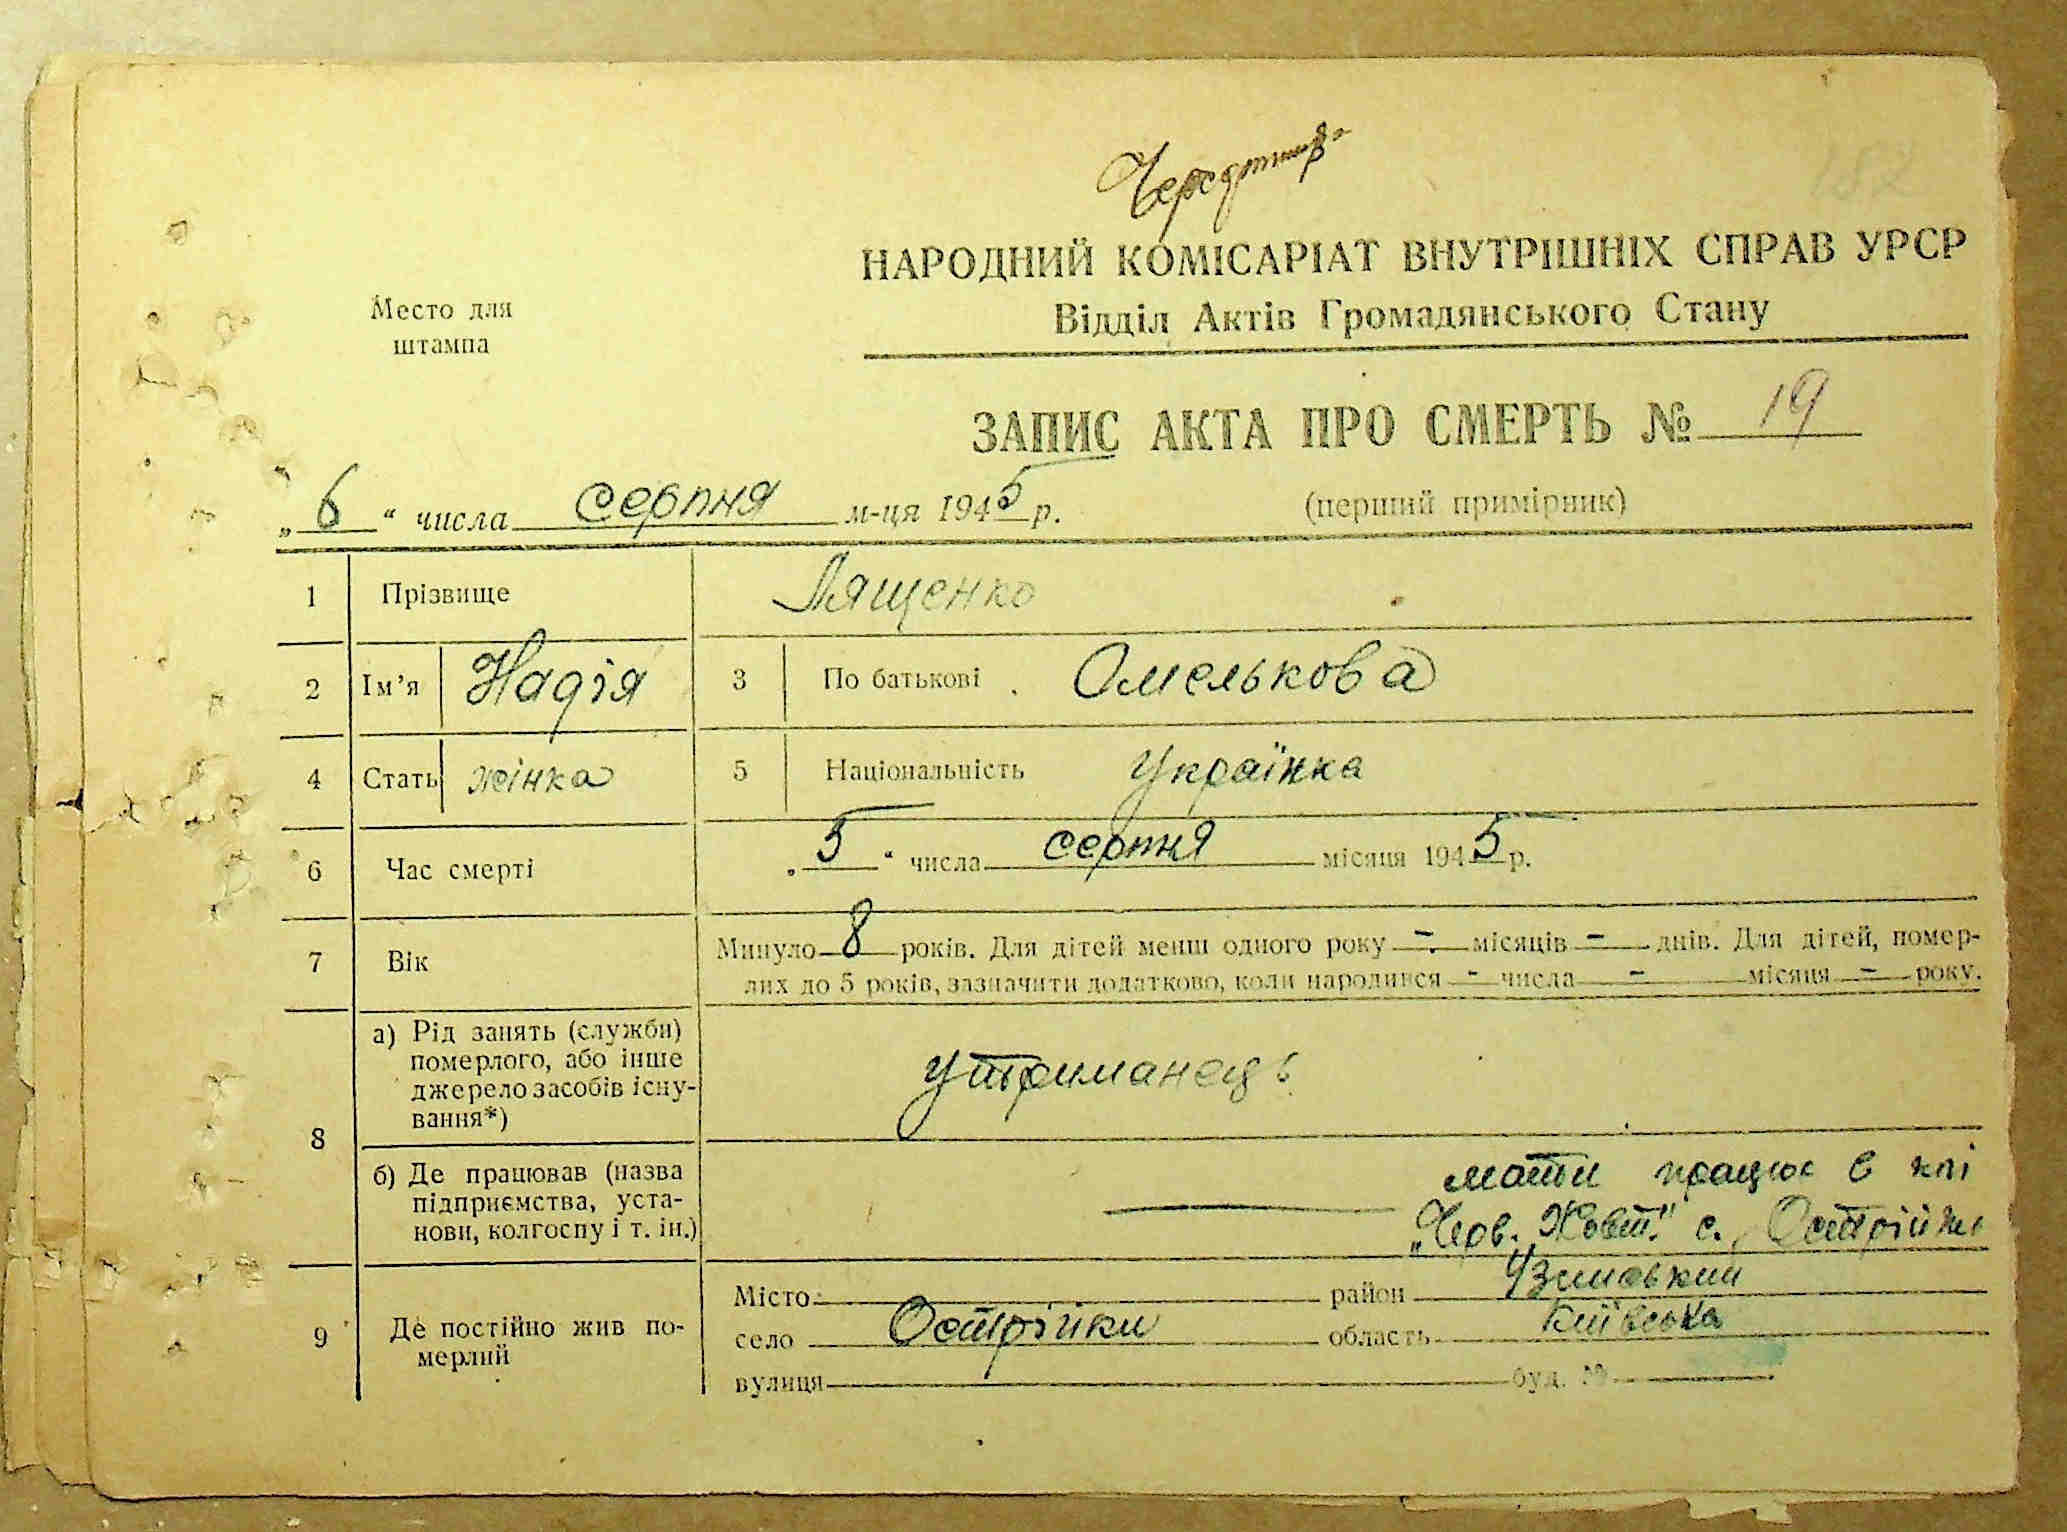 182
НАРОДНИЙ КОМІСАРІАТ ВНУТРІШНІХ СПРАВ УРСР
Відділ Актів Громадянського Стану
Место для
штампа
ЗАПИС АКТА ПРО СМЕРТЬ № 19
„ 6 “ числа серпня м-ця 1945 р. (перший примірник)
1 Прізвище Лященко
2 Ім’я Надія 3 По батькові Омелькова
4 Стать жінка 5 Національність Українка
6 Час смерті „ 5 “ числа серпня місяця 1945 р.
7 Вік Минуло 8 років. Для дітей менш одного року - місяців - днів. Для дітей, помер-
лих до 5 років, зазначити додатково, коли народився - числа - місяця - року.
8 а) Рід занять (служби)
померлого, або інше
джерело засобів існу-
вання*)
утриманець
б) Де працював (назва
підприємства, уста-
нови, колгоспу і т. ін.)
мати працює в
„Черв. Жовт." с. Острійки
9 Де постійно жив по-
мерлий
Місто район Узинський
село Острійки область Київська
вулиця буд. №